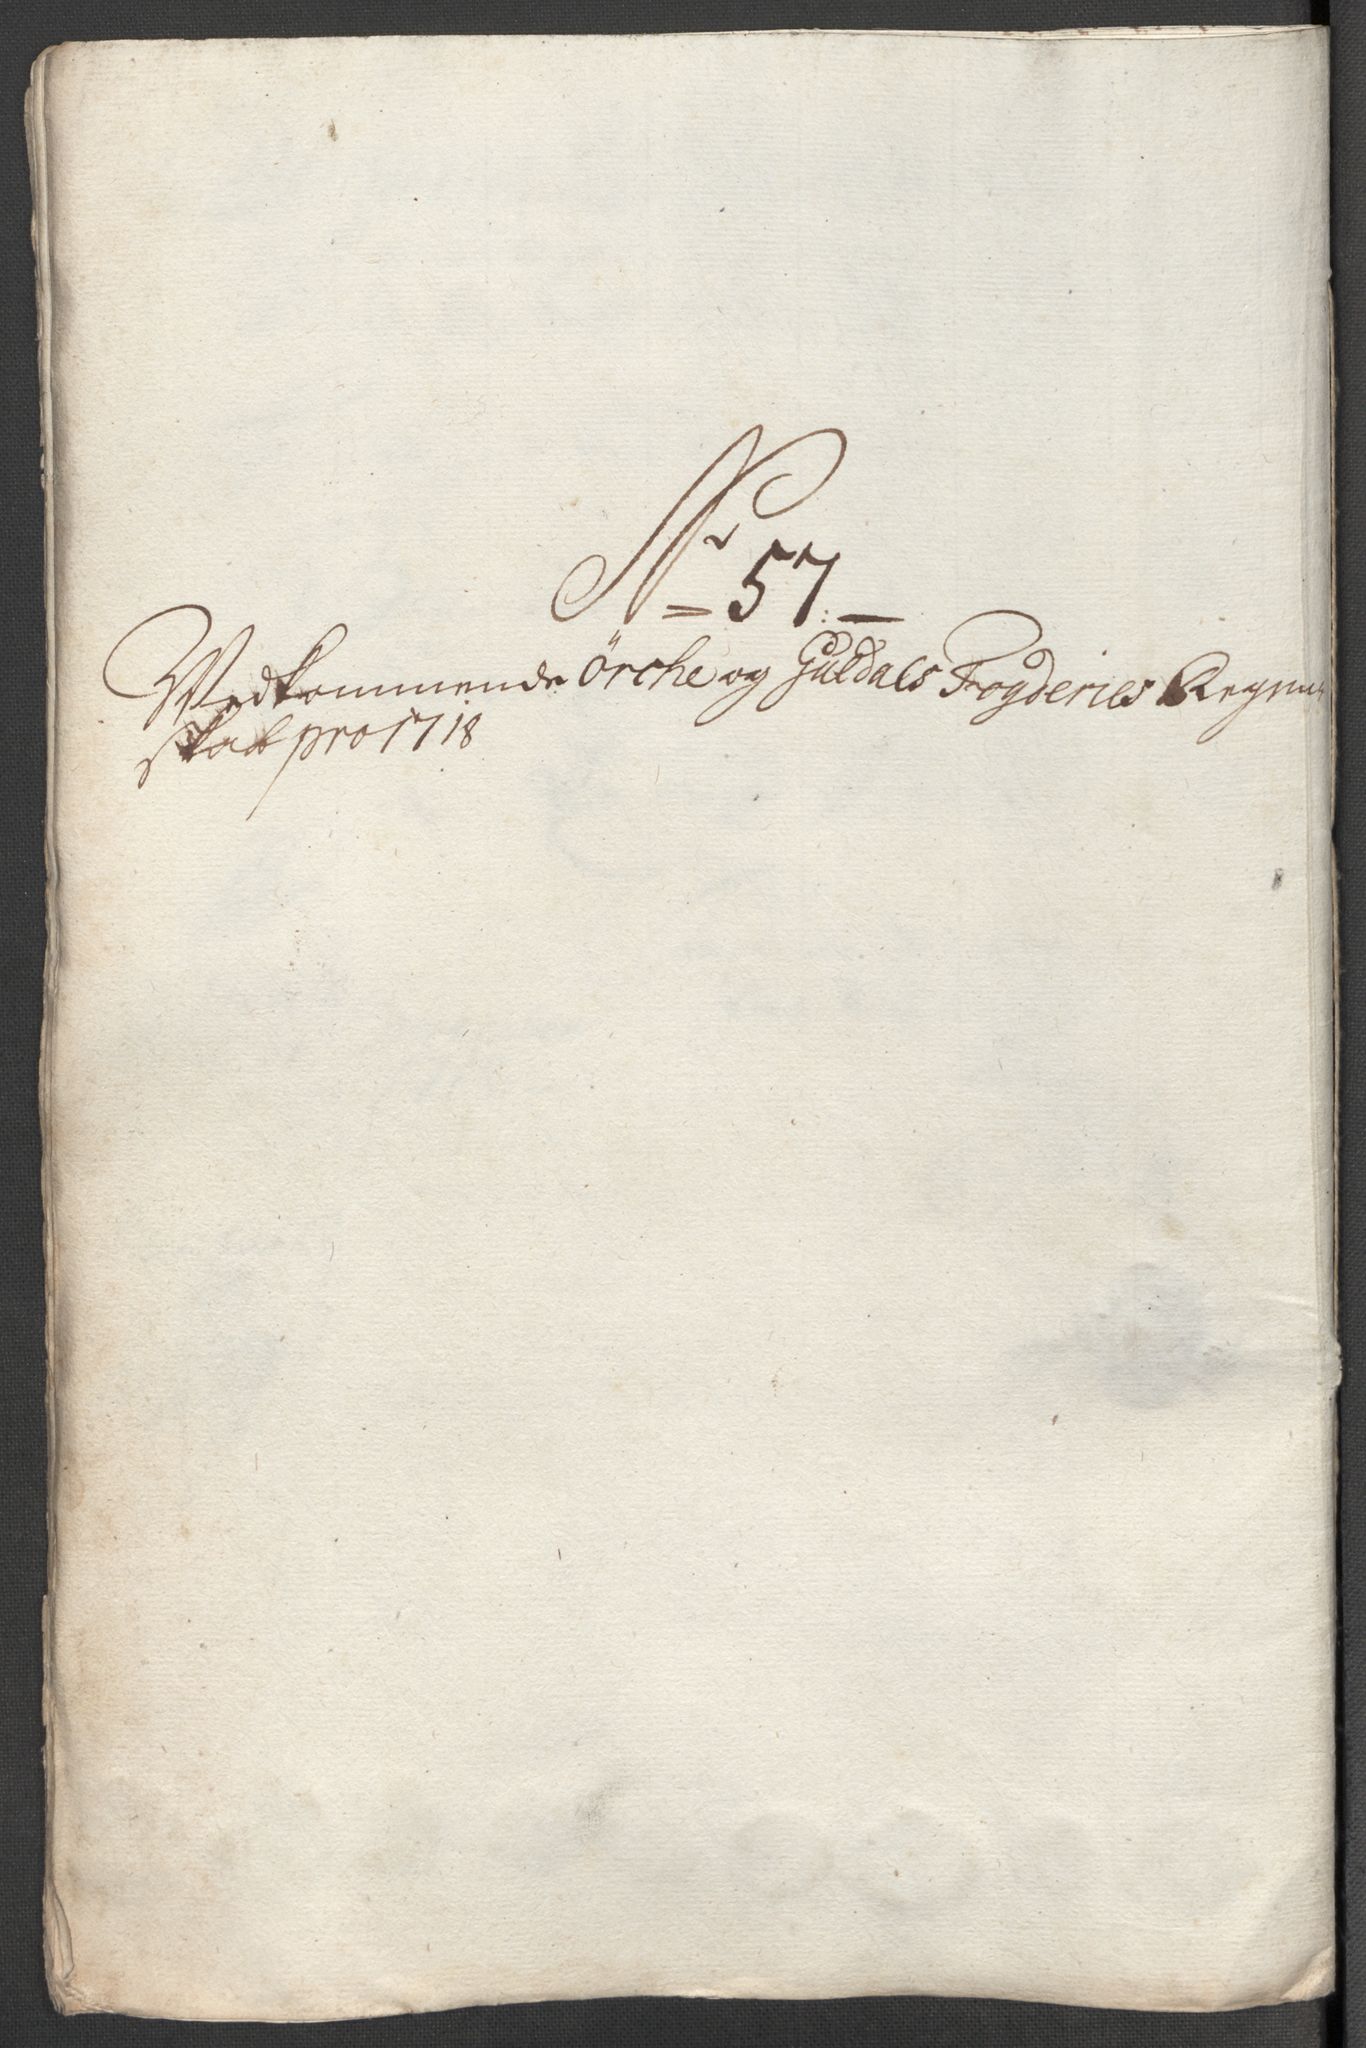 Nr
57.
Wedkommende Örche og Guldals Fogderies Regn
skab pro 1718